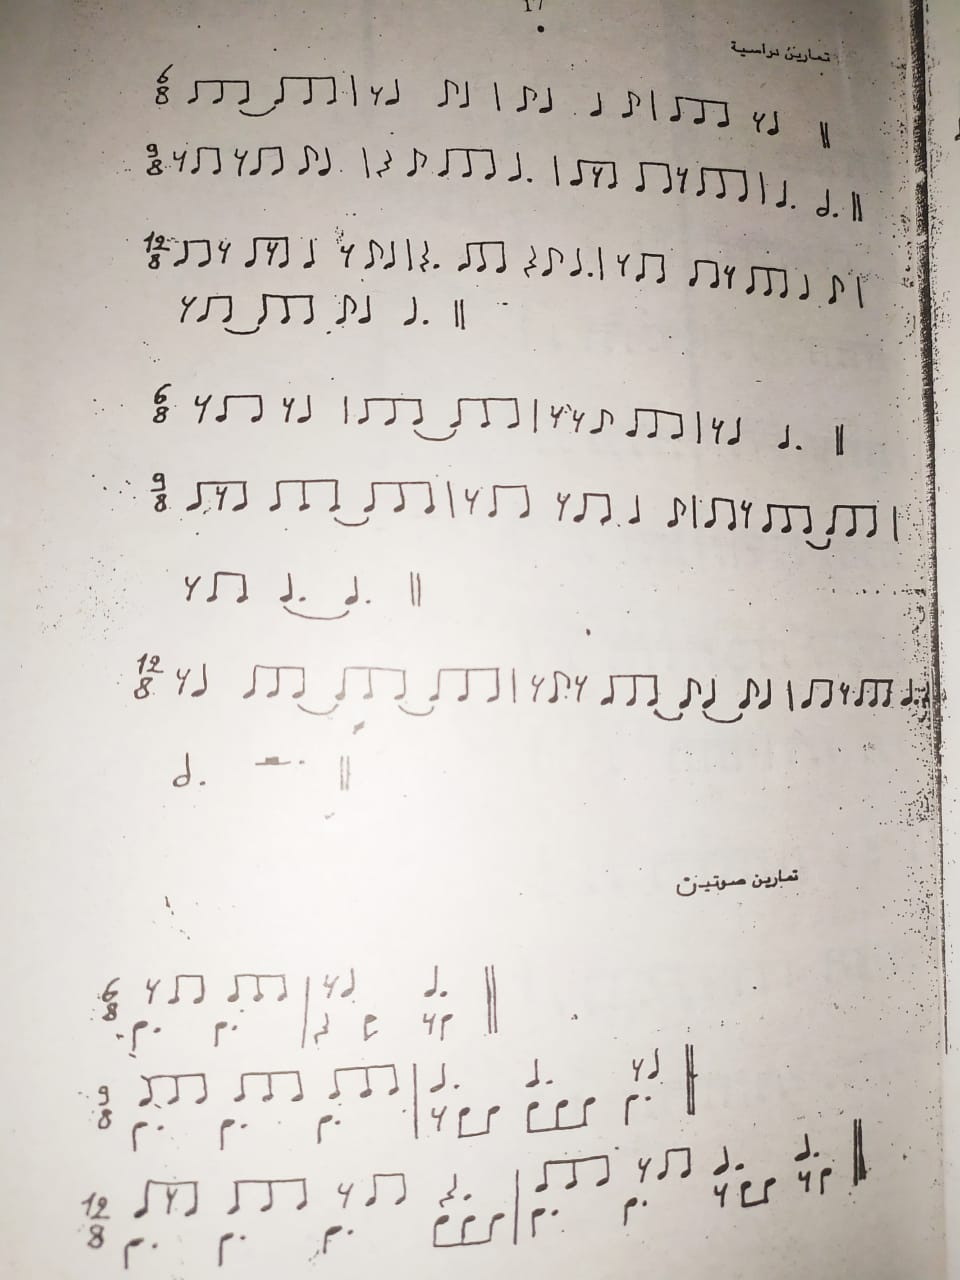 17
تمارين دراسية
6
8
9
8
12
8
6
8
9
8
12
8
تمارين صوتين
6
8
9
8
12
8